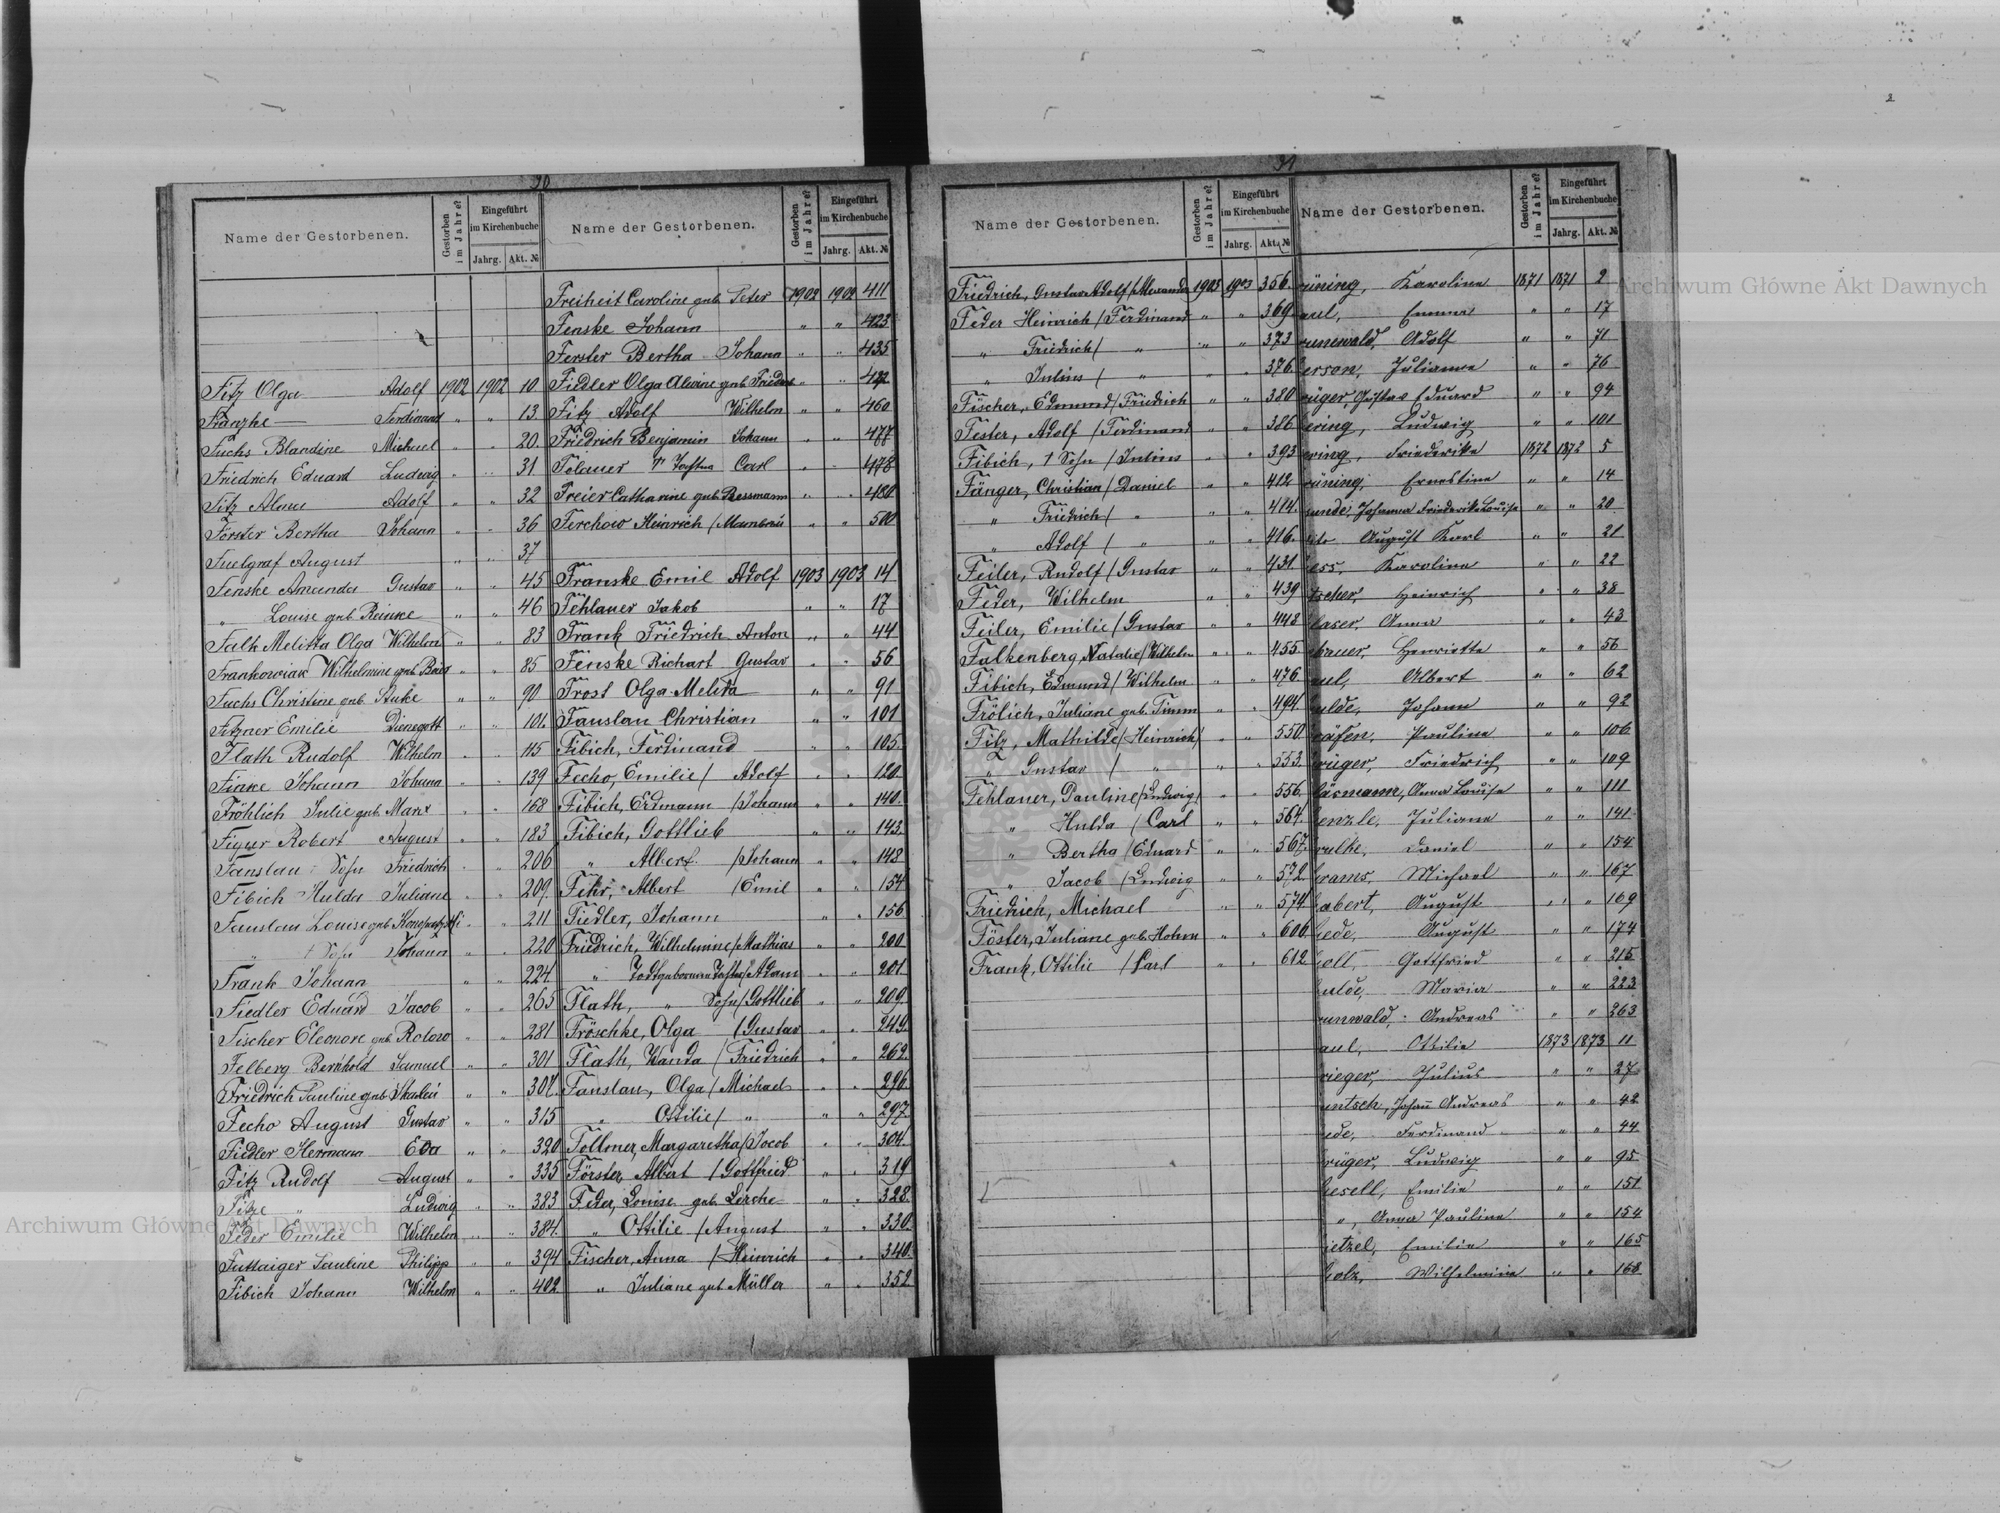 90
Name der Gestorbenen. Gestorben im Jahre? Eingeführt im Kirchenbuche Jahrg. Akt. №
Fitz Olga Adolf 1902 1902 10
Franzke — Ferdinand " " 13
Fuchs Blandine Michael " " 20
Friedrich Eduard Ludwig " " 31
Fitz Alma Adolf " " 32
Förster Bertha Johann " " 36
August " " 37
Fenske Amanda Gustav " " 45
" Louise geb. Reinke " " 46
Falk Melitta Olga Wilhelm " " 83
Frankowiak Wilhelmine geb. " " 85
Fuchs Christine geb. " " 90
Fitzner Emilie Dienegott " " 101.
Flath Rudolf Wilhelm " " 115
Finke Johann Johann " " 139
Fröhlich Julie geb. Marx " " 168
Figur Robert August " " 183
Fanslau Sohn Friedrich " " 206
Fibich Hulda Juliane " " 209.
Fanslau Louise geb. " " 211
" Sohn Johann " " 220
Frank Johann " " 224.
Fiedler Eduard Jacob " " 265
Fischer Eleonore geb. " " 281
Felberg Bernhold Samuel " " 301
Friedrich Pauline geb. " " 307.
Fecho August Gustav " " 315
Fiedler Hermann Eva " " 320
Fitz Rudolf August " " 335
Fitze " Ludwig " " 383
Feder Emilie Wilhelm " " 384.
Futtaiger Pauline Philipp " " 394
Fibich Johann Wilhelm " " 402
Name der Gestorbenen. Gestorben im Jahre? Eingeführt im Kirchenbuche Jahrg. Akt. №
Freiheit Caroline geb. Peter 1902 1902 411
Fenske Johann " " 423
Ferster Bertha Johann " " 435
Fiedler Olga Alwine geb. " "
Fitz Adolf Wilhelm " " 460
Friedrich Benjamin Johann " " 477
Carl " " 478
Freier Catharine geb. Bessmann " " 480
Ferchow Heinrich " " 500
Franske Emil Adolf 1903 1903 14
Fehlauer Jakob " " 17
Frank Friedrich Anton " " 44
Fenske Richart Gustav " " 56
Frost Olga Melida " " 91
Fauslau Christian " " 101
Fibich, Ferdinand " " 105.
Fecho, Emilie / Adolf " " 120
Fibich, Erdmann / Johann " " 140.
Fibich, Gottlieb " " 143.
" Albert / Johann " " 148
Fehr, Albert / Emil " " 154
Fiedler, Johann " " 156
Friedrich, Wilhelmine / Mathias " " 200
" Todtgeborene Tochter / Adam " " 201
Flath, " Sohn / Gottlieb " " 209.
Fröschke, Olga / Gustav " " 249.
Flath, Wanda / Friedrich " " 269.
Fanslau, Olga / Michael " " 296
" Ottilie / " " " 297.
Follmer, Margaretha / Jacob " " 304.
Förster, Albert / Gottfried " " 319
Feder, Louise geb. Lerche " " 328.
" Ottilie / August " " 330.
Fischer, Anna / Heinrich " " 340.
" Juliane geb. Müller " " 352
91
Name der Gestorbenen. Gestorben im Jahre? Eingeführt im Kirchenbuche Jahrg. Akt. №
Friedrich, Gustav Adolf / 1903 1903 356.
Feder Heinrich / Ferdinand " " 369.
" Friedrich / " " " 373
" Julius / " " " 376.
Fischer, Edmund / Friedrich " " 380
Fester, Adolf / Ferdinand " " 386
Fibich, 1 Sohn / Julius " " 393
Fänger, Christian / Daniel " " 412
" Friedrich / " " " 414.
" Adolf / " " " 416.
Feiler, Rudolf / Gustav " " 431.
Feder, Wilhelm " " 439
Feiler, Emilie / Gustav " " 448
Falkenberg, Natalie / Wilhelm " " 455
Fibich, Edmund / Wilhelm " " 476
Frölich, Juliane geb. Timm " " 494.
Fitz, Mathilde / Heinrich / " " 550.
" Gustav / " " " 553.
Fehlauer, Pauline / Ludwig / " " 556.
" Hulda / Carl " " 564.
" Bertha / Eduard " " 567.
" Jacob / Ludwig " " 572.
Friedrich, Michael " " 574.
Föster, Juliane geb. Hohm " " 606.
Frank, Ottilie / Carl " " 612
Name der Gestorbenen. Gestorben im Jahre? Eingeführt im Kirchenbuche Jahrg. Akt. №
rüning, Karoline 1871 1871 2
aul, Emma " " 17
runewald, Adolf " " 71
erson, Julianna " " 76
rüger, Gustav Eduard " " 94
ering, Ludwig " " 101
ering, Friederike 1872 1872 5
rüning, Ernestine " " 14
unde, Johanna Friederike Louise " " 20
August Karl " " 21
ess, Karoline " " 22
Heinrich " " 38
laser, Anna " " 43
bauer, Henriette " " 56
aul, Albert " " 62
ulde, Johann " " 92
räfen, Pauline " " 106
rüger, Friedrich " " 109
läsmann, Anna Louise " " 111
enzle, Juliane " " 141
rulke, Daniel " " 154
rams, Michael " " 167
abert, August " " 169
iede, August " " 174
oll, Gottfried " " 215
ulde, Maria " " 223
runwald, Andreas " " 263
aul, Ottilie 1873 1873 11
rieger, Julius " " 27
untsch, Johann Andreas " " 42
iede, Ferdinand " " 44
rüger, Ludwig " " 95
Gesell, Emilie " " 151
", Anna Pauline " " 154
ietzel, Emilie " " 165
Golz, Wilhelmine " " 168
Archiwum Główne Akt Dawnych
Archiwum Główne Akt Dawnych